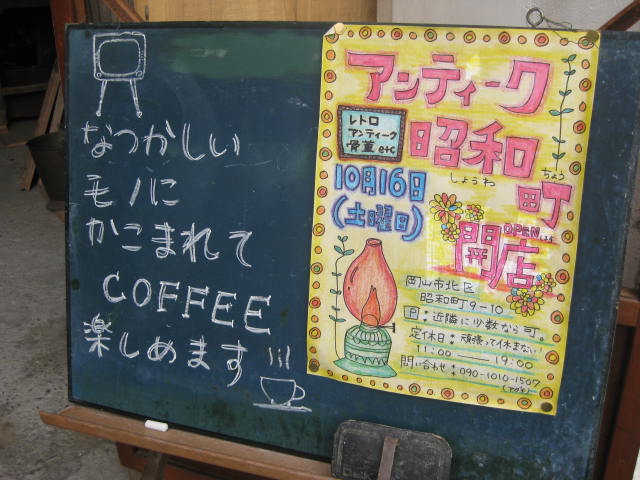 なつかしい
モノに
かこまれて
COFFEE
楽しめます
アンティーク
レトロ
アンティーク
骨董etc
昭和
しょうわ
町
ちょう
10月16日
(土曜日)
OPEN
開店
岡山市北区
昭和町9-10
P:近隣に少数なら可。
定休日:頑張って休まない!
11:00——19:00
問い合わせ:090-1010-1507